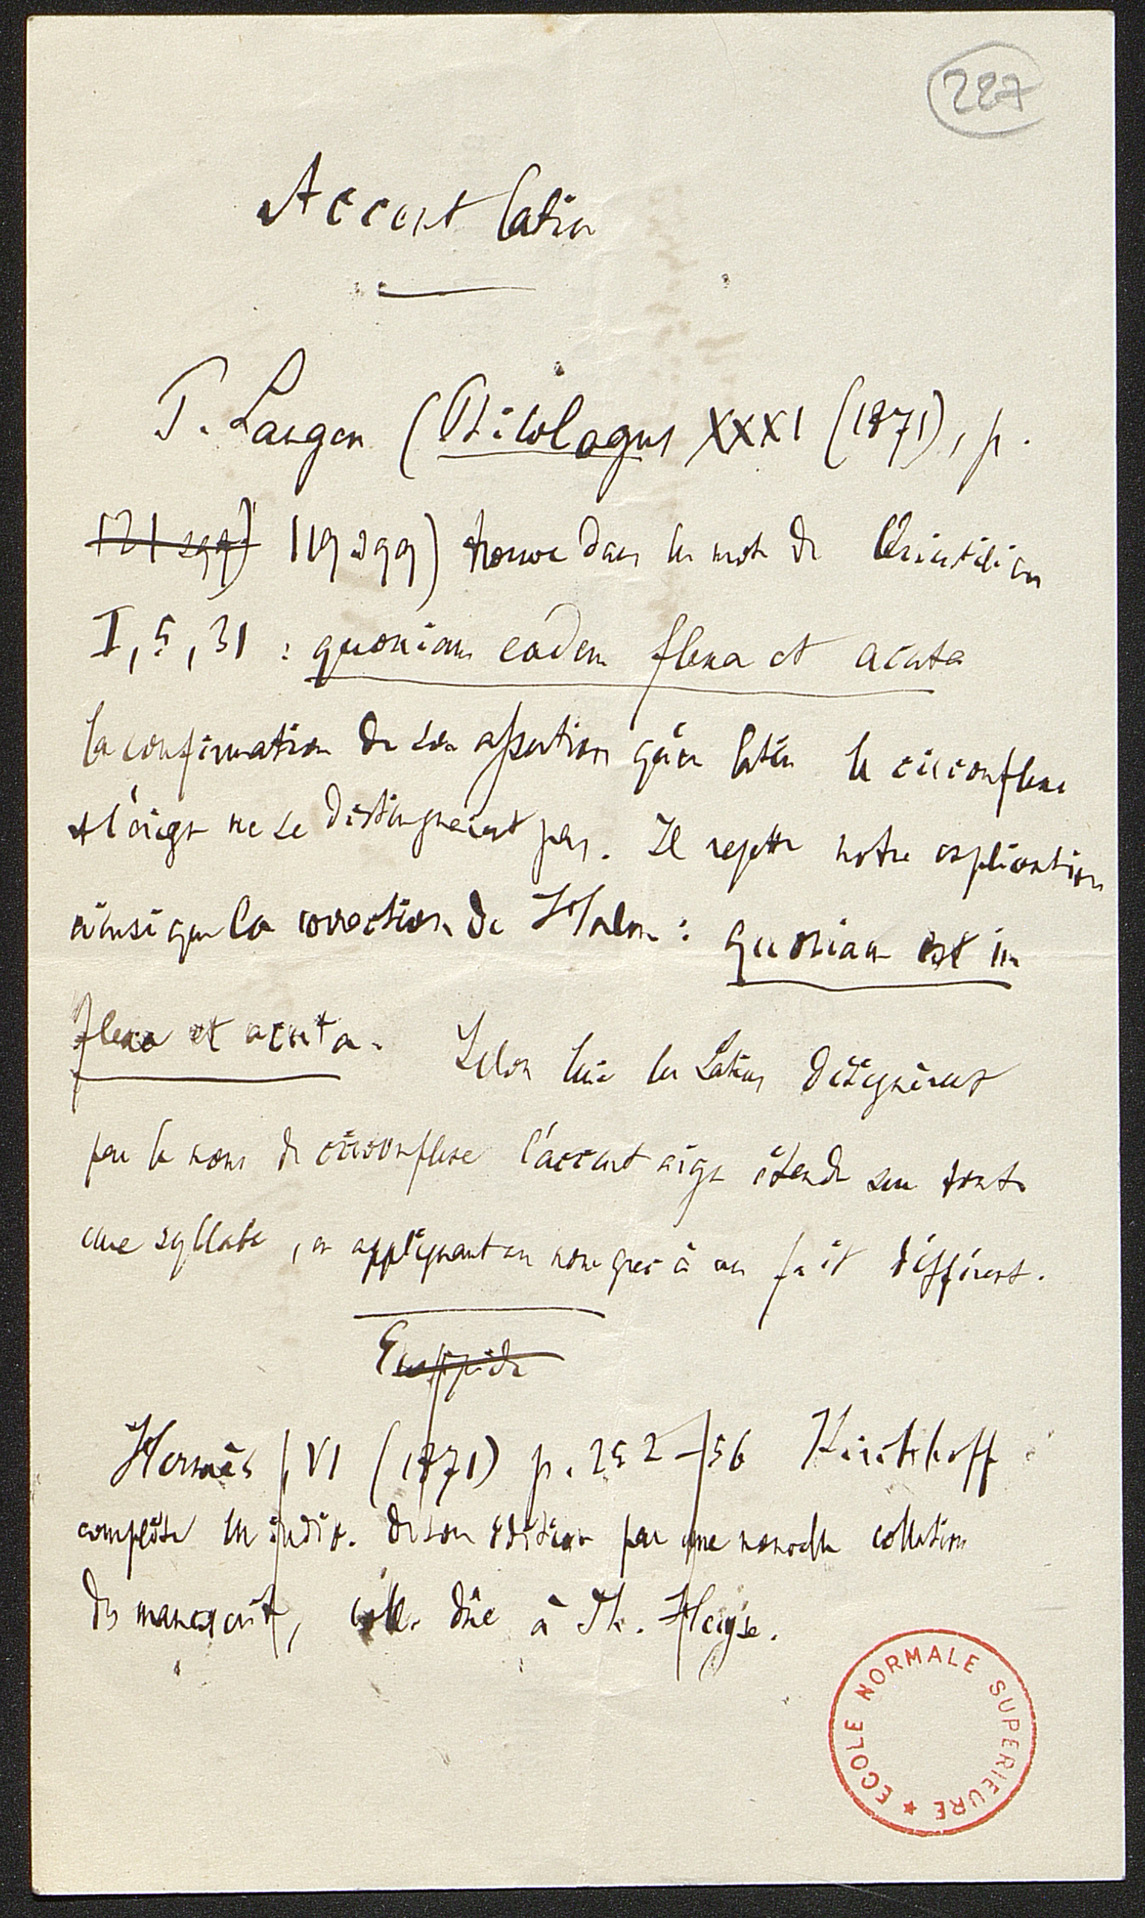 227
Accent latin
P. Langen (Philologus XXXI (1871), p.
121 sqq) 119 sqq) trouve dans les mots de Quintilien
I, 5, 31 : quoniam eadem flexa et acuta
la confirmation de son assertion qu'en latin le circonflexe
et l'aigu ne se distinguaient pas. Il rejette notre explication
ainsi que la correction de Halm : quoniam est in
flexa et acuta. Selon lui les Latins désignèrent
par le nom de circonflexe l'accent aigu étendu sur toute
une syllabe, en appliquant un nom grec à un fait différent.
Euripide
Hermès VI (1871) p. 252-56 Kirchhoff
complète les indic. de son édition par une nouvelle collation
des manuscrits, coll. dûe à Th. Heyse.
ECOLE NORMALE SUPERIEURE